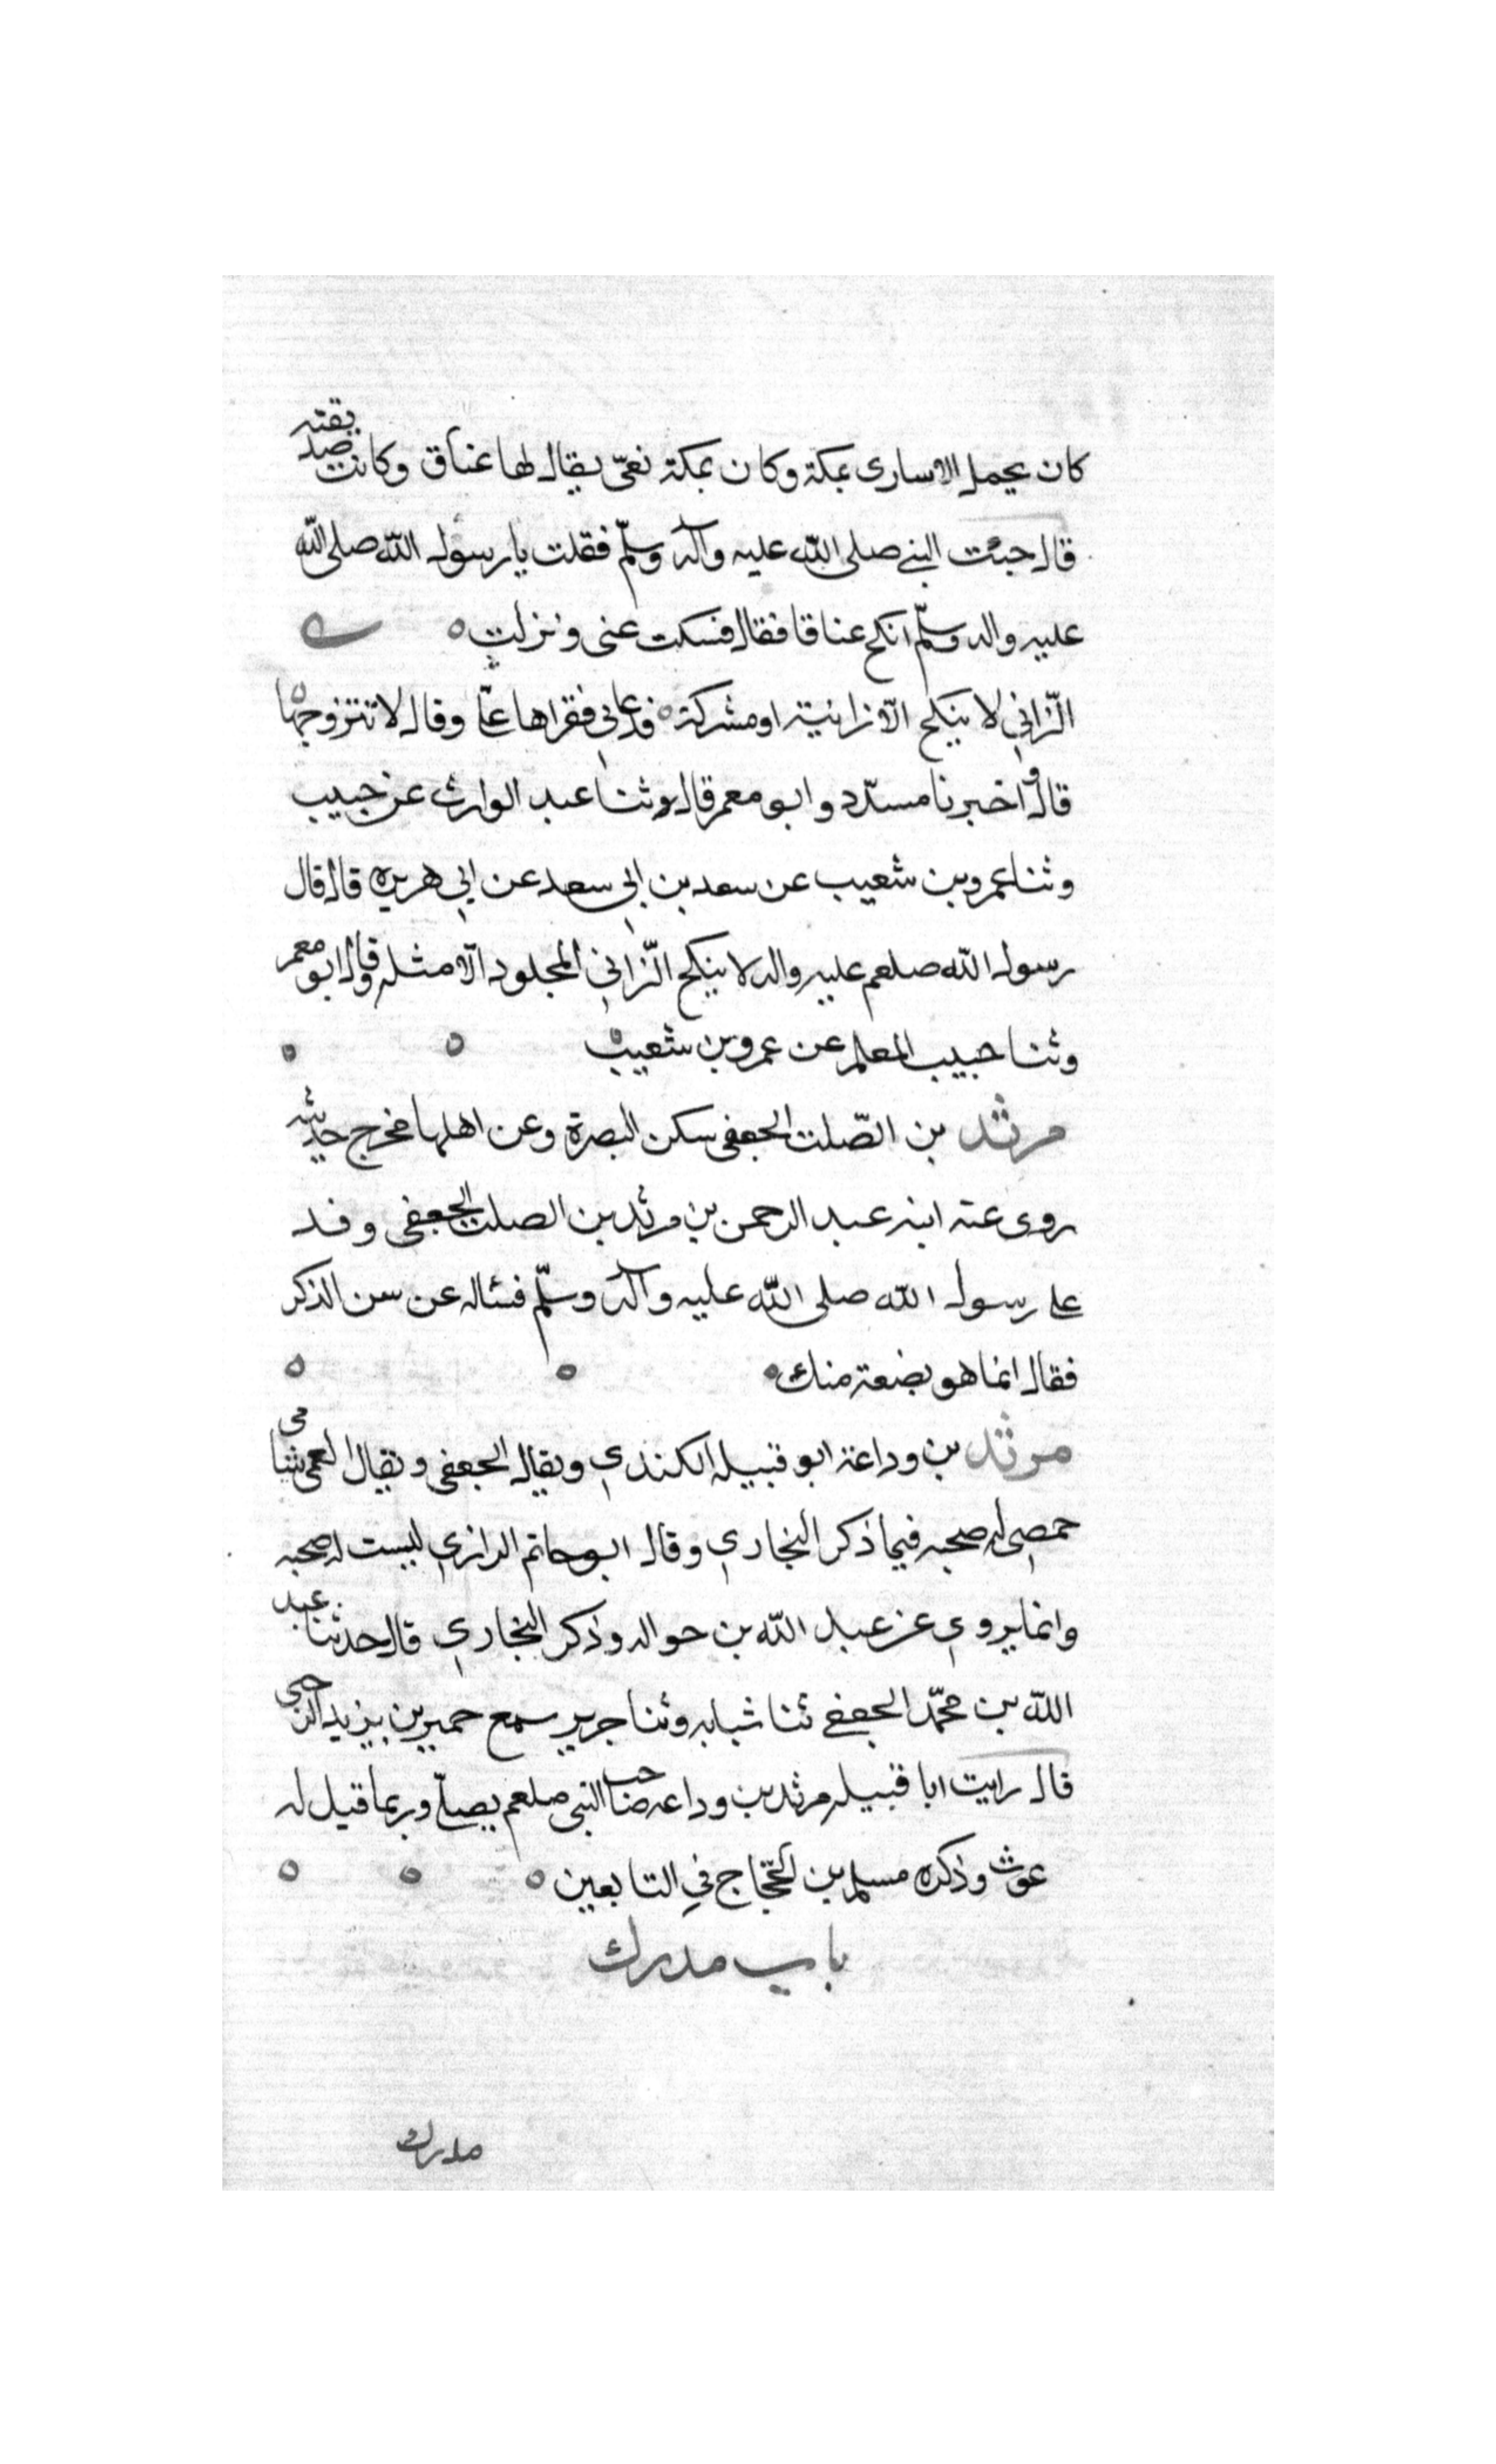 كان يحمل الاسارى بمكة وكان بمكة نغىّ يقال لها عناق وكانت صديقته
قال جئت النبي صلى الله عليه وآله وسلّم فقلت يا رسول الله صلى الله
عليه واله وسلّم انكح عناقا فقال فسكت عنى ونزلت
الزّاني لا ينكح الّا زانية او مشركة فدعاني فقراها علىّ وقال لا تتزوجها
قال واخبرنا مسدّد وابو معمر قالا وثنا عبد الوارث عن حبيب
وثنا عمرو بن شعيب عن سعد بن ابي سعد عن ابي هريره قال قال
رسول الله صلعم عليه واله لا ينكح الزّاني المجلود الّا مثله وقال ابو معمر
وثنا حبيب المعلم عن عمرو بن شعيب
مرثد بن الصّلت الجعفى سكن البصرة وعن اهلها مخرج حديثه
روى عنه ابنه عبد الرحمن بن مرثد بن الصلت الجعفى وفد
على رسول الله صلى الله عليه وآله وسلّم فسئاله عن سن الذكر
فقال انما هو بضعة منك
مرثد بن وداعة ابو قبيله الكندي ويقال الجعفى ويقال العمى شامى
حمصي له صحبه فيما ذكر البخاري وقال ابو حاتم الرازي ليست له صحبه
وانما يروي عن عبد الله بن حواله وذكر البخاري قال حدثنا عبد
الله بن محمّد الجعفي ثنا شبابه وثنا جرير سمع حمير بن يزيد الرحبى
قال رايت ابا قبيله مرثد بن وداعه صاحب النبى صلعم يصلّى وربما قيل له
عوث وذكره مسلم بن الحجّاج في التابعين
باب مدرك
مدرك